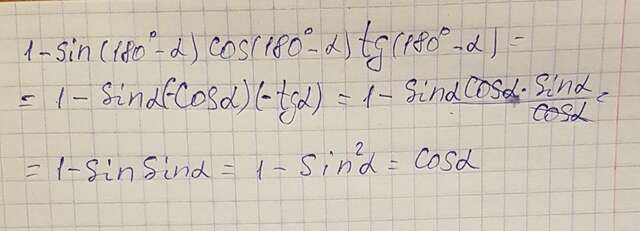 1-sin(180°-α)cos(180°-α)tg(180°-α)=
= 1-sinα(-cosα)(-tgα) = 1-sinαcosα·sinα/cosα=
= 1-sinsinα = 1-sin²α = cosα